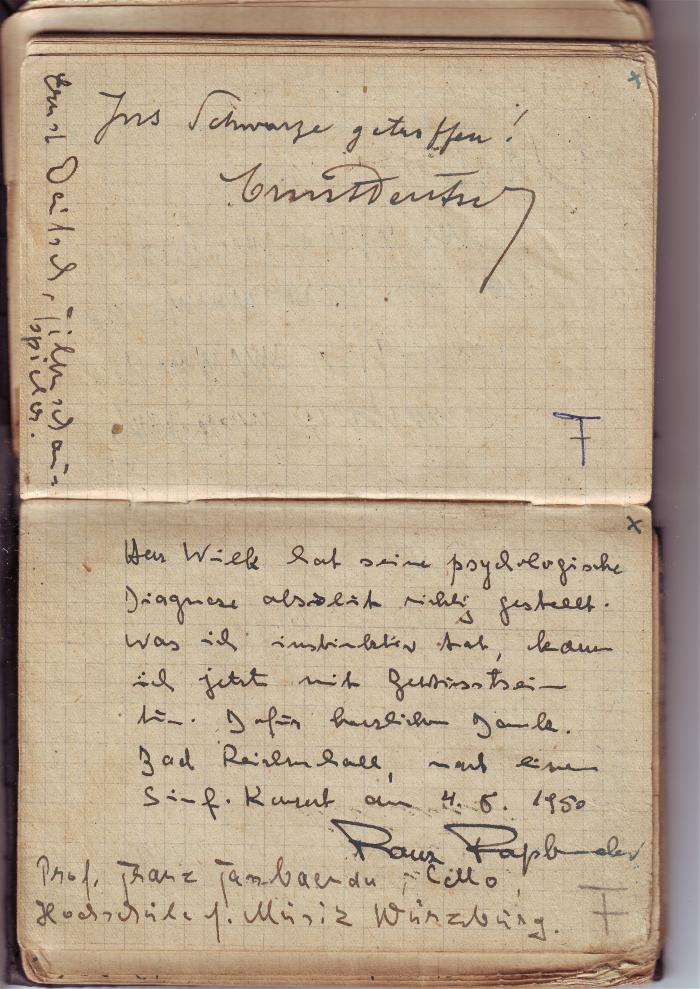 Ins Schwarze getroffen!
Ernst Deutsch
Ernst Deutsch, Filmschau-
spieler.
F
Herr Wilk hat seine psychologische
Diagnose absolut richtig gestellt.
Was ich instinktiv tat, kann
ich jetzt mit Bewusstsein
tun. Dafür herzlichen Dank.
Bad Reichenhall, nach einem
Sinf. Konzert am 4. 6. 1950
Franz
Prof. Franz Cello,
Hochschule f. Musik Würzburg.
F